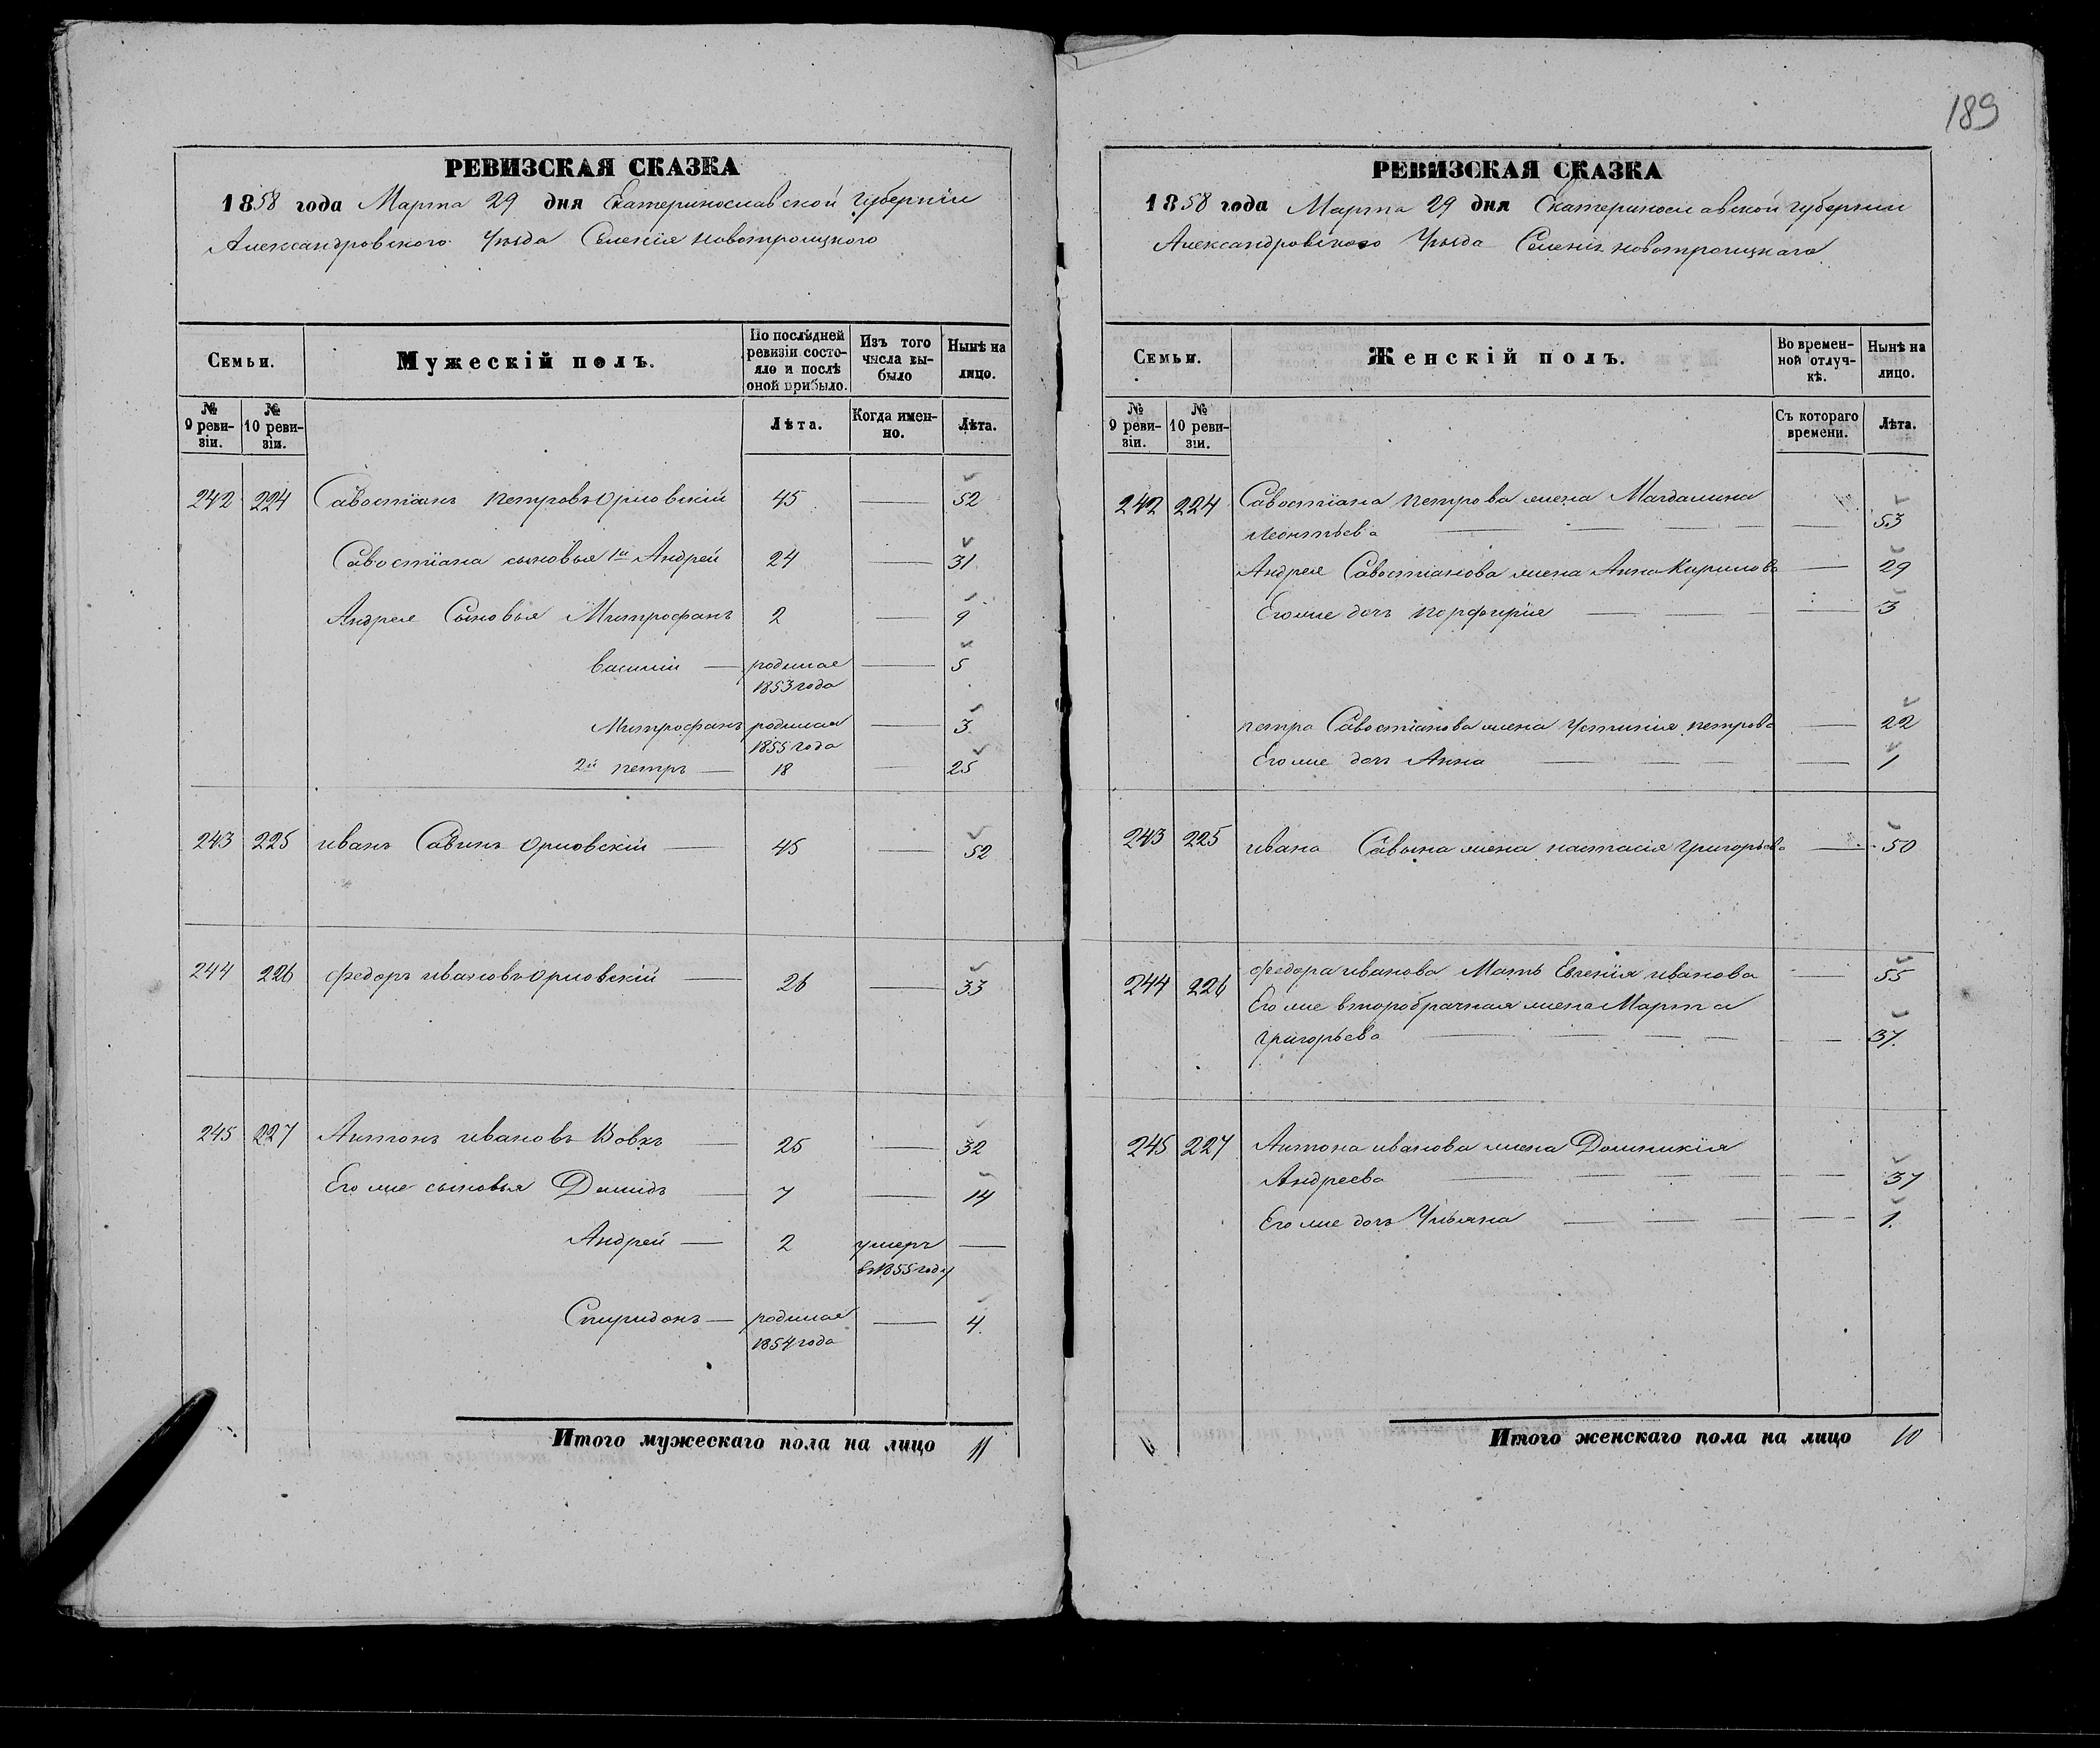 189
РЕВИЗСКАЯ СКАЗКА
1858 года Марта 29 дня Екатеринославской губернiи
Александровского Уѣзда Селенiя новотроицкого
Семьи. Мужескiй полъ. По послѣдней ревизiи состояло и послѣ оной прибыло. Изъ того числа выбыло Нынѣ на лицо.
№ 9 ревизiи. № 10 ревизiи. Лѣта. Когда именно. Лѣта.
242 224 Савостiанъ петровъ Орловскiй 45 — 52
Савостiана сыновья 1й Андрей 24 — 31
Андрея Сыновья Митрофанъ 2 — 9
василiй — родился 1853 года — 5
Митрофанъ родился 1855 года — 3
2й петръ — 18 — 25
243 225 иванъ Савинъ Орловскiй — 45 — 52
244 226 федоръ ивановъ Орловскiй — 26 — 33
245 227 Антонъ ивановъ Вовкъ — 25 — 32
Его же сыновья Демидъ — 7 — 14
Андрей — 2 умеръ в 1855 году —
Спиридонъ — родился 1854 года — 4
Итого мужескаго пола на лицо 11
РЕВИЗСКАЯ СКАЗКА
1858 года Марта 29 дня Екатеринославской губернии
Александровского Уѣзда Селенiя новотроицкаго
Семьи. Женскiй полъ. Во временной отлучкѣ. Нынѣ на лицо.
№ 9 ревизiи. № 10 ревизiи. Съ котораго времени. Лѣта.
242 224 Савостiана петрова жена Магдалина
леонтьева — 53
Андрея Савостiанова жена Анна Кирилова — 29
Его же дочь порфирiя — 3
петра Савостiанова жена Устинiя петрова — 22
Его же дочь Анна — 1
243 225 ивана Савына жена настасiя григорьева — 50
244 226 федора иванова Мать Евгенiя иванова — 55
Его же второбрачная жена Марта
григорьева — 37.
245 227 Антона иванова жена Домникiя
Андреева — 37
Его же дочь Ульяна — 1.
Итого женскаго пола на лицо 10